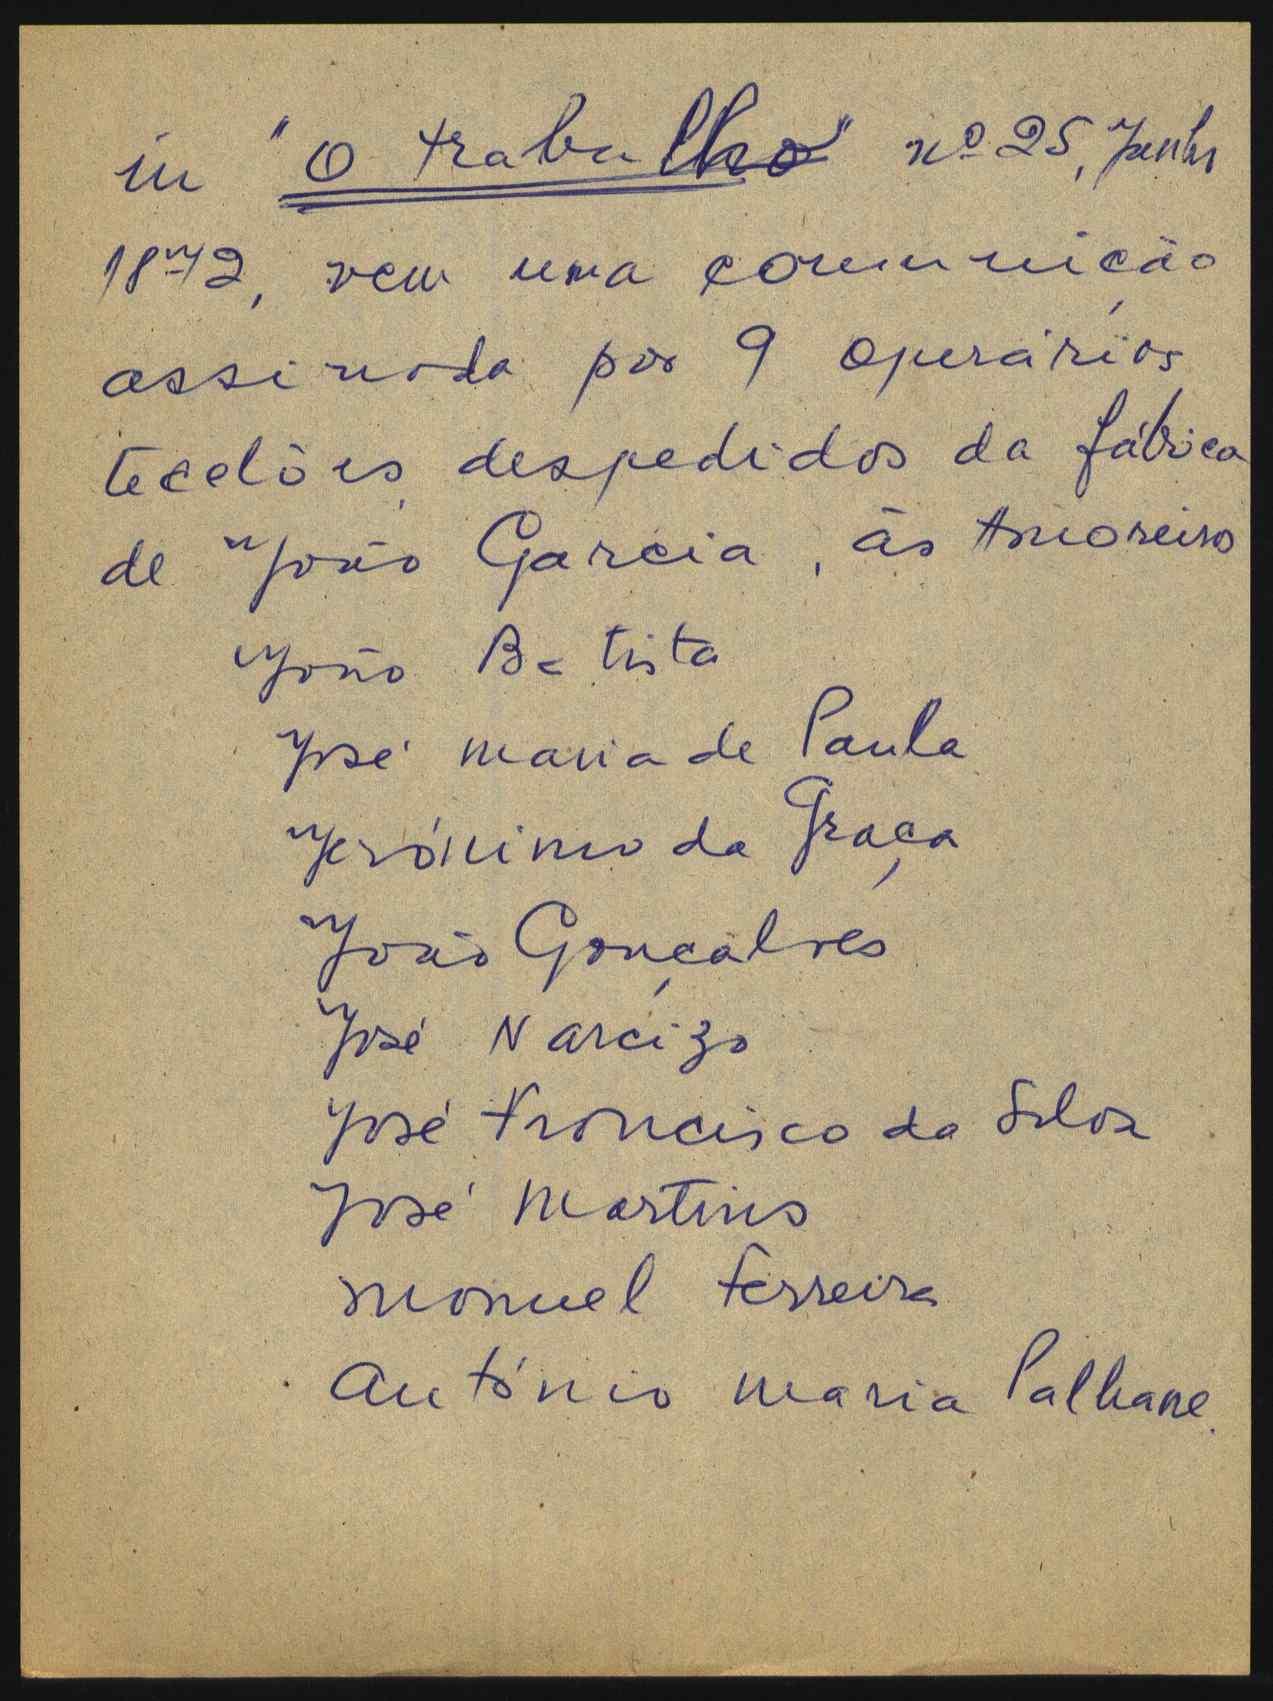 in "O trabalho" nº 25, Junho
1872, vem uma comunicação
assinada por 9 operários
tecelões, despedidos da fábrica
de João Garcia, às Amoreiras
João Batista
José Maria de Paula
Jerónimo da Graça
João Gonçalves
José Narcizo
José Francisco da Silva
José Martins
Manuel Ferreira
António Maria Palhane.